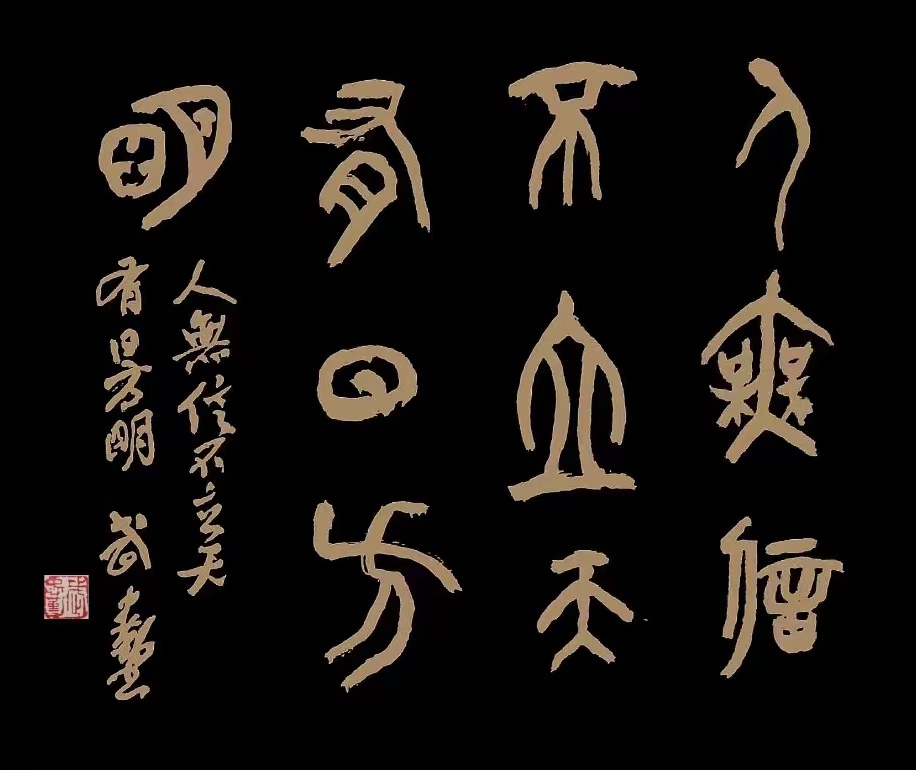 人無信
不立天
有日方
明
人無信不立天
有日方明 武中